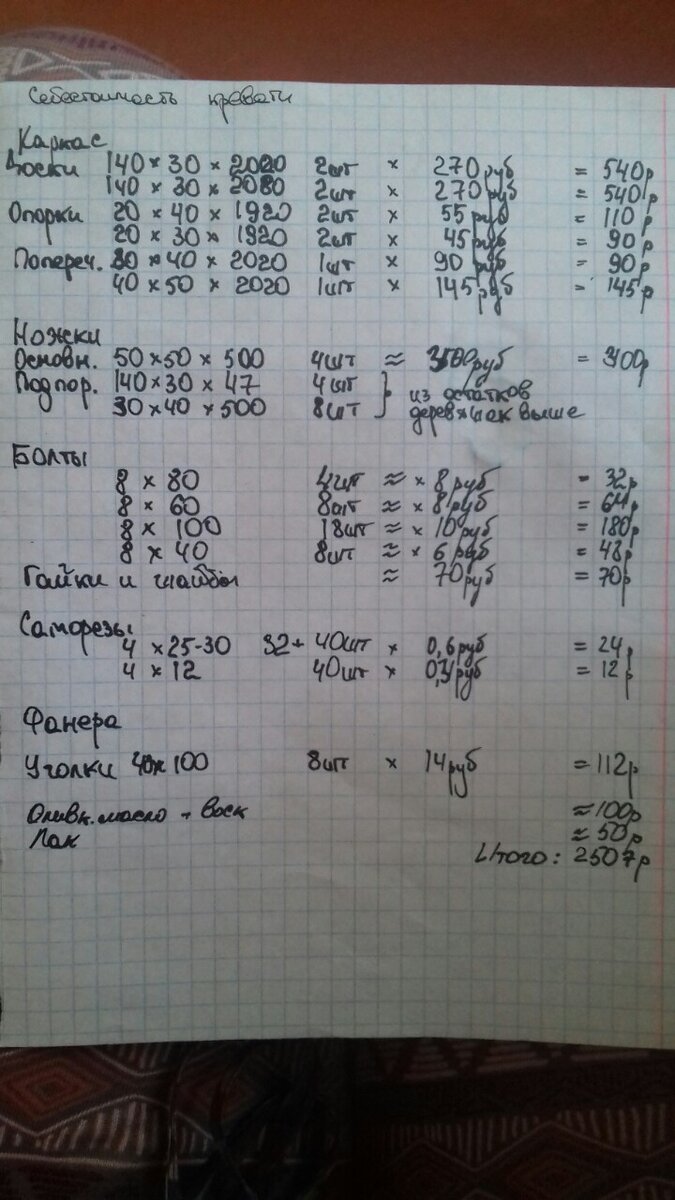 Себестоимость кровати
Каркас
Доски 140 × 30 × 2020 2шт × 270руб = 540р
140 × 30 × 2080 2шт × 270руб = 540р
Опорки 20 × 40 × 1920 2шт × 55руб = 110р
20 × 30 × 1920 2шт × 45руб = 90р
Попереч. 30 × 40 × 2020 1шт × 90руб = 90р
40 × 50 × 2020 1шт × 145руб = 145р
Ножки
Основн. 50 × 50 × 500 4шт ≈ 300руб = 300р
Подпор. 140 × 30 × 47 4шт } из остатков
30 × 40 × 500 8шт деревяшек выше
Болты
8 × 80 4шт ≈ × 8руб = 32р
8 × 60 8шт ≈ × 8руб = 64р
8 × 100 18шт ≈ × 10руб = 180р
8 × 40 8шт ≈ × 6руб = 48р
Гайки и шайбы ≈ 70руб = 70р
Саморезы
4 × 25-30 32+40шт × 0,6руб = 24р
4 × 12 40шт × руб = 12р
Фанера
Уголки 40×100 8шт × 14руб = 112р
Оливк. масло + воск ≈ 100р
Лак ≈ 50р
Итого: 2507р